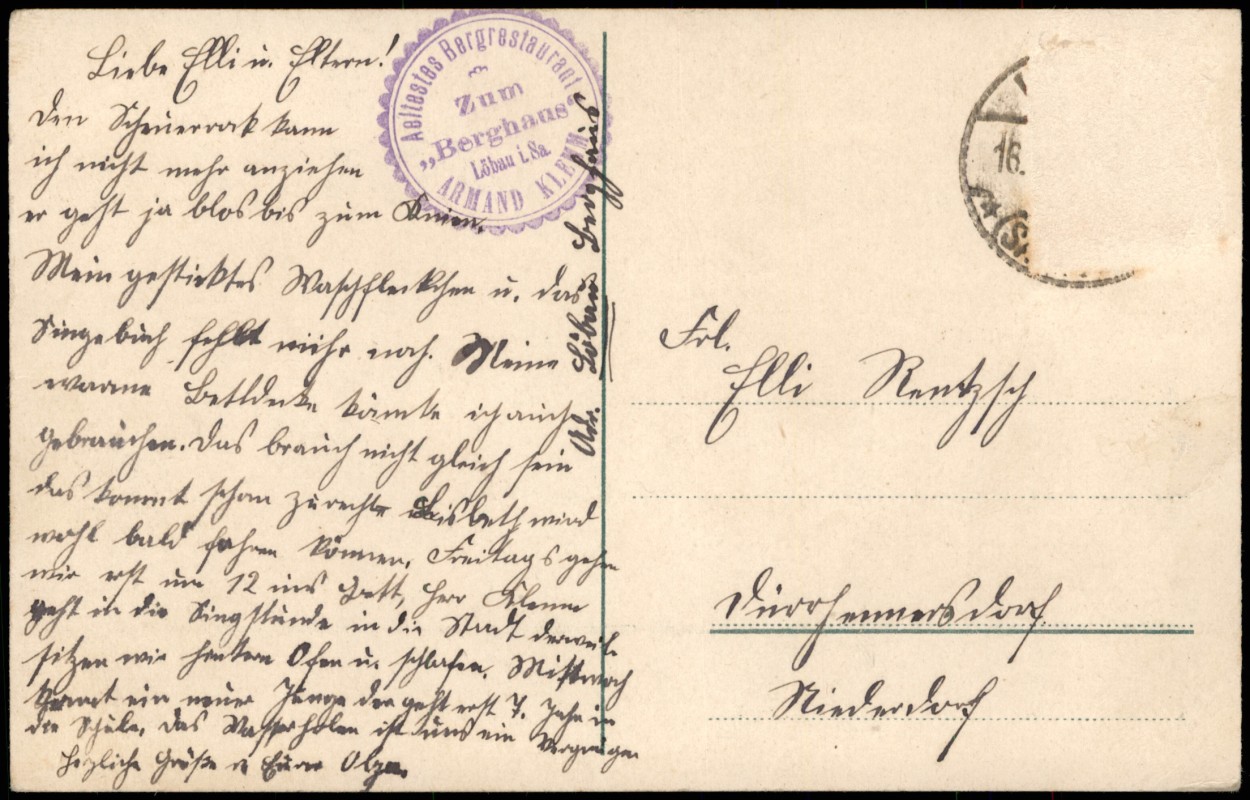 Liebe Elli u. Eltern!
Den Scheuerrock kann
ich nicht mehr anziehen
er geht ja blos bis zum Knien.
Mein gesticktes Waschfleckchen u. das
Singebuch fehlt mihr noch. Meine
warme Bettdecke könnte ich auch
gebrauchen. Das brauch nicht gleich sein
das kommt schon zurecht Lisbeth wird
wohl bald fahren können. Freitags gehen
wir erst um 12 ins Bett, Herr Klemm
geht in die Singstunde in die Stadt derweile
sitzen wir hintern Ofen u. schlafen. Mittwoch
kommt ein neuer Junge der geht erst 7. Jahr in
die Schule. Das Wasserholen ist uns ein Vergnügen
Herzliche Grüße Eure Olga.
Adr. Löbau Berghaus
Aeltestes Bergrestaurant
Zum
„Berghaus“
Löbau i. Sa.
ARMAND KLEMM
16.
Frl.
Elli Rentzsch
Dürrhennersdorf
Niederdorf